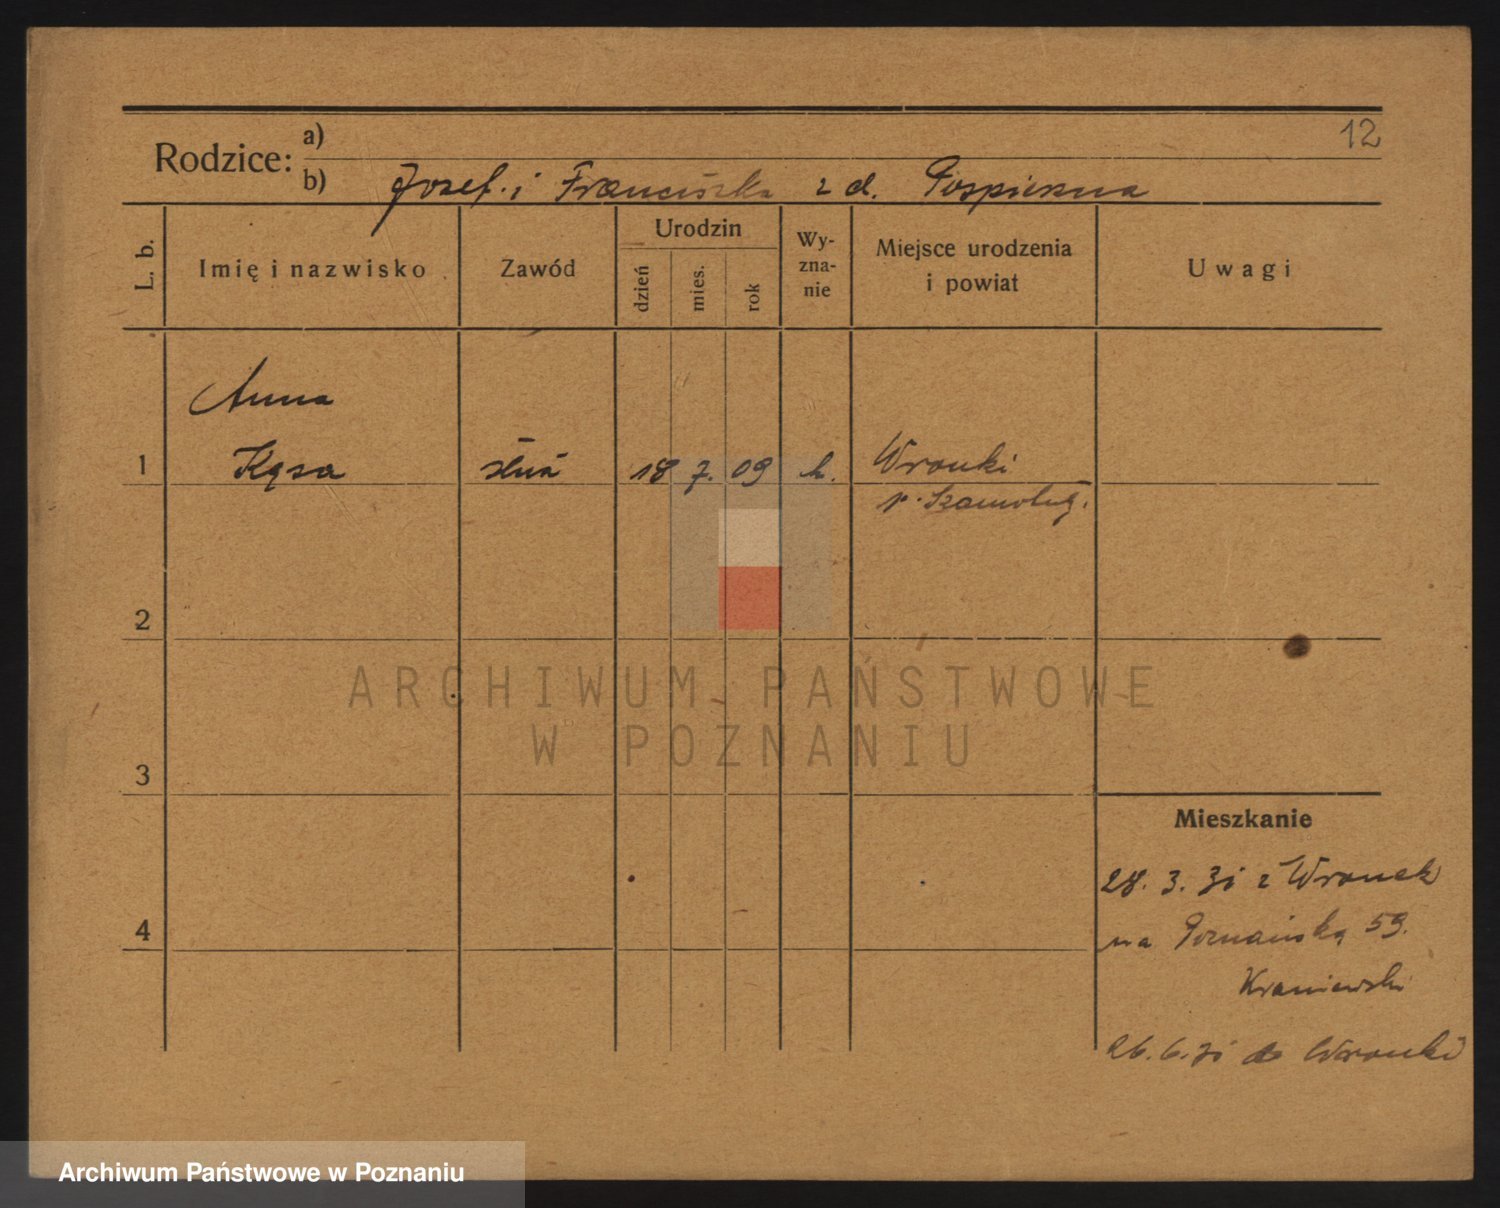 12
Rodzice: a)
b) Jozef i Franciszka z d. Pospieszna
L. b.
Imię i nazwisko
Zawód
Urodzin
dzień
mies.
rok
Wy-
zna-
nie
Miejsce urodzenia
i powiat
Uwagi
Anna
1 Kąsa służ 18 7. 09 k. Wronki
p. Szamotuły.
2
ARCHIWUM PAŃSTWOWE
W POZNANIU
3
Mieszkanie
28. 3. 31 z Wronek
4
na Poznańską 59.
Kraniewski
26. 6. 31 do Wronki
Archiwum Państwowe w Poznaniu